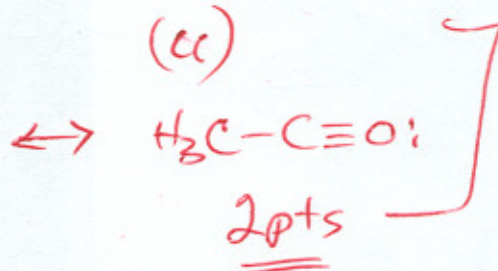 (a)
↔ H₃C-C≡O:
2pts